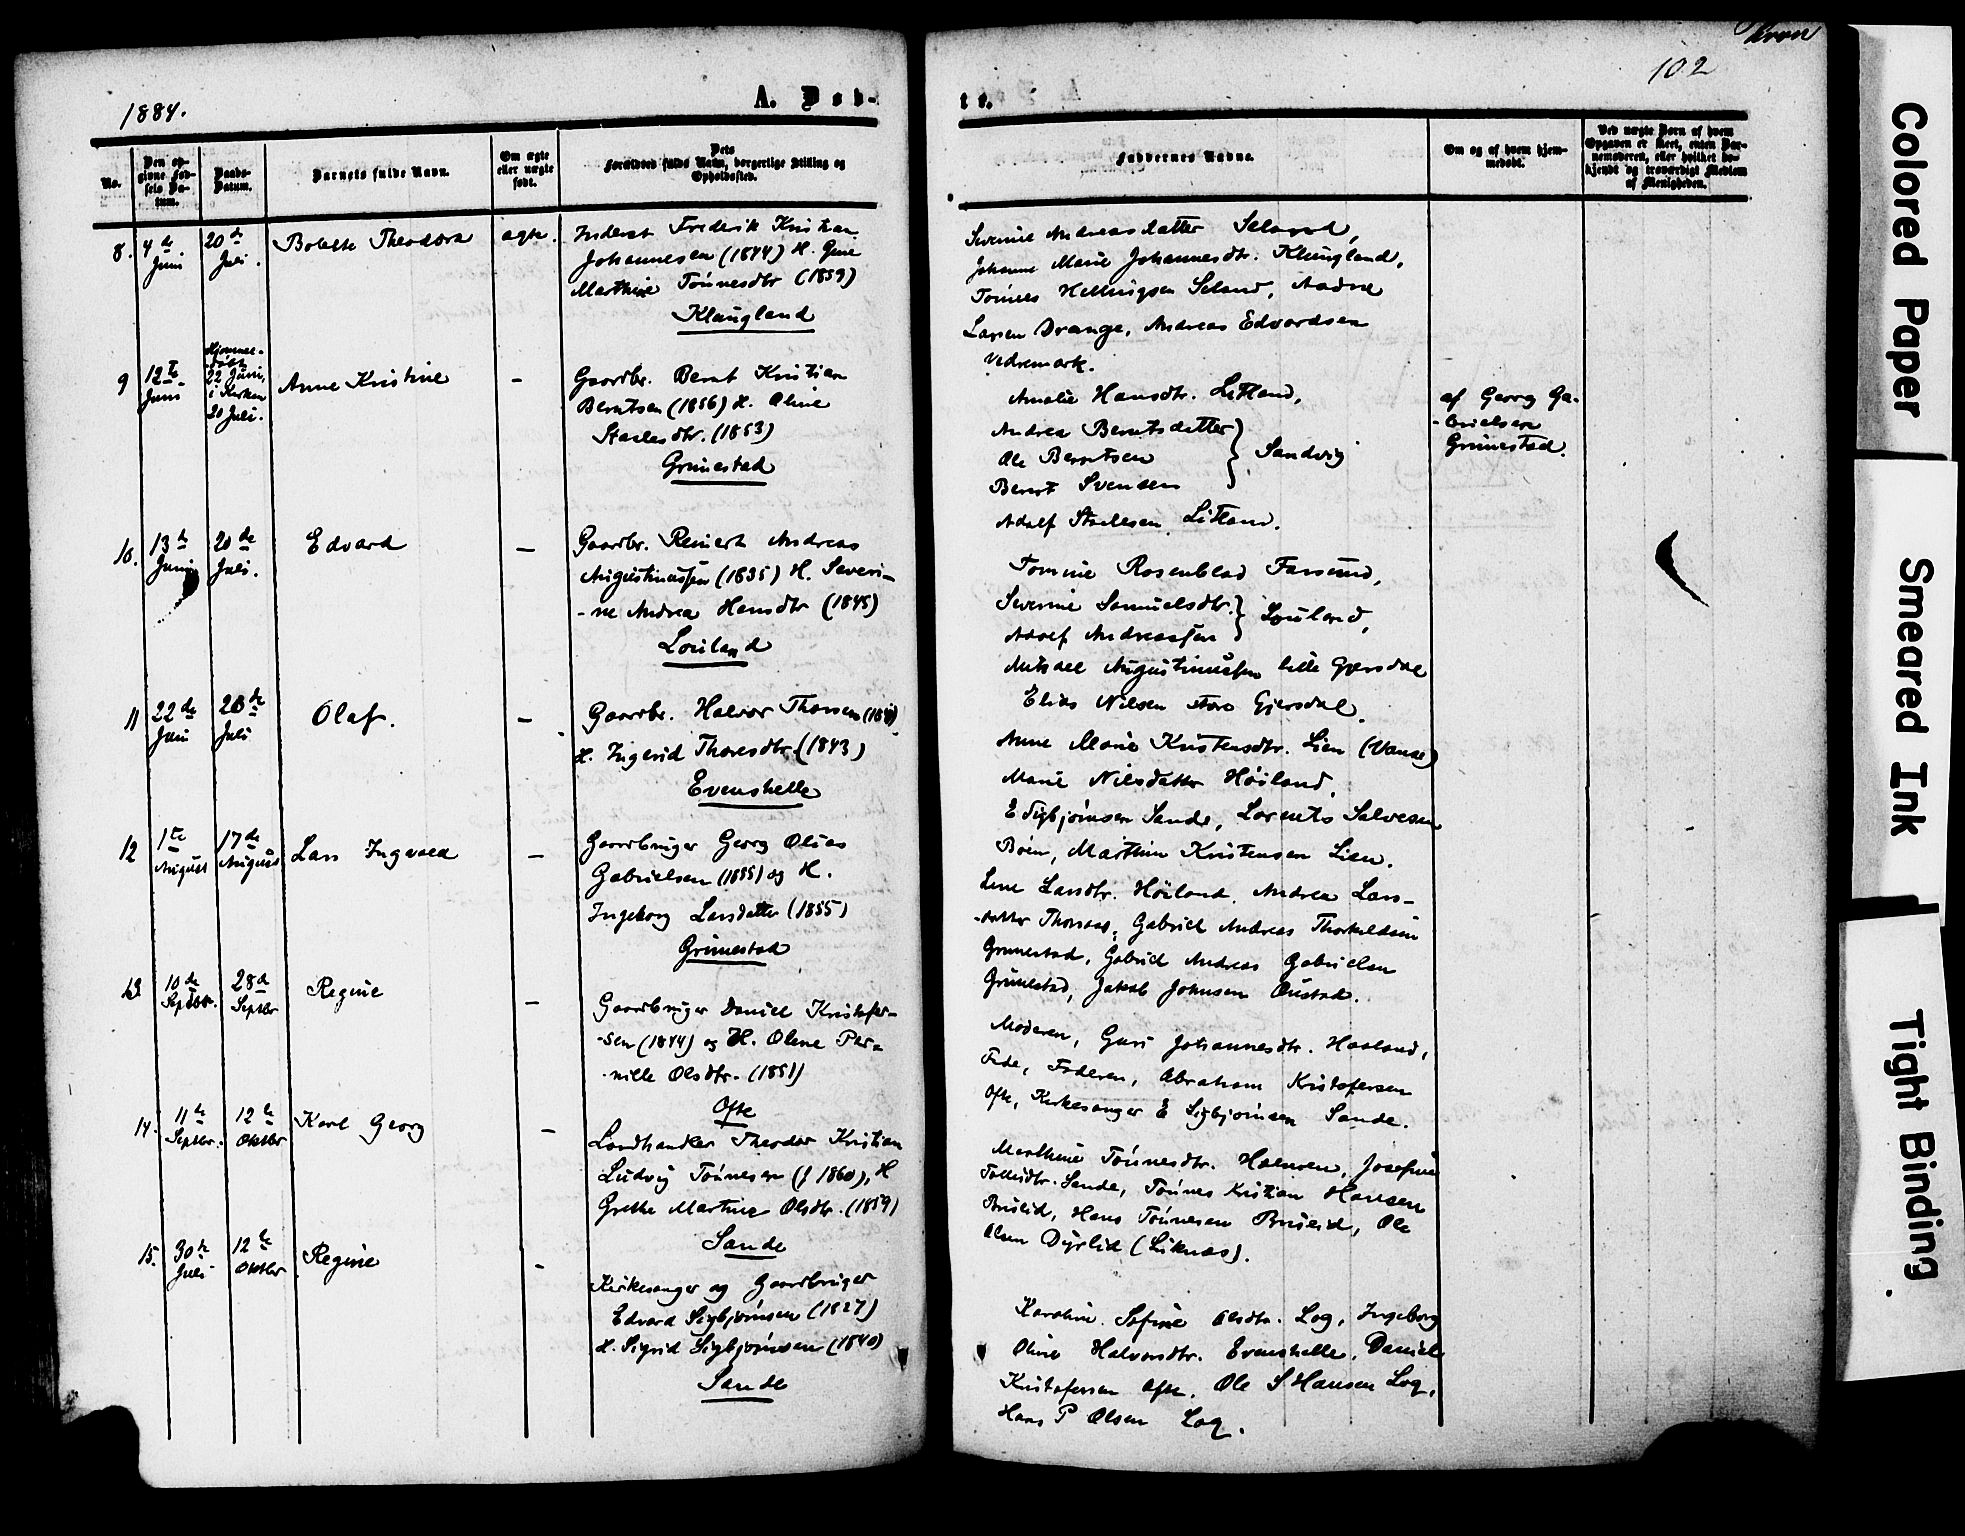 1884.
A. Døb-
No.
Den op-
givne Fød-
sels Da-
tum.
Daabs-
Datum.
Barnets fulde Navn.
Om ægte
eller uægte
født.
Dets
Forældres fulde Navn, borgerlige Stilling og
Opholdssted.
8.
4de
Juni
20de
Juli.
Bolette Theodora
ægte.
Inderst Fredrik Kristian
Johannesen (1844) H. Gine
Marthine Tønnesdtr (1859)
Klungland
9
12te
Juni
Hjemme-
døbt
22 Juni,
i Kirken
20 Juli.
Anne Kristine
-
Gaardbr. Bernt Kristian
Berntsen (1856) H. Oline
Staalesdtr. (1853)
Grimestad
10.
13de
Juni
20de
Juli.
Edvard
-
Gaardbr. Reinert Andreas
Augustinussen (1835) H. Severi-
-ne Andrea Hansdtr (1845)
Louland
11
22de
Juni
20de
Juli
Olaf.
-
Gaardbr. Halvor Thorsen
H. Ingerid Thoresdtr. (1843)
Evenshelle
12
1te
August
17de
August
Lars Ingvald
-
Gaardbruger Georg Olias
Gabrielsen (1855) og H.
Ingeborg Larsdatter (1855)
Grimestad
13
10de
Septbr.
28de
Septbr
Regine
-
Gaardbruger Daniel Kristofer-
-sen (1844) og H. Oline Per-
-nille Olsdtr. (1851)
Ofte
14.
11te
Septbr.
12te
Oktbr
Karl Georg
-
Landhandler Theodor Kristian
Ludvig Tønnesen (f 1860), H
Grethe Martine Olsdtr. (1859)
Sande
15.
30te
Juli
12te
Oktbr
Regine
-
Kirkesanger og Gaardbruger
Edvard Sigbjørnsen (1827)
H. Sigrid Sigbjørnsen (1840)
Sande
102
te.
Faddernes Navne.
Om og af hvem hjem-
medøbt.
Ved uægte Børn af hvem
Opgaven er skeet, enten Bar-
nemoderen, eller hvilket be-
kjendt og troværdigt Medlem
af Menigheden.
Severine Andreasdatter Seland,
Johanne Marie Johannesdtr. Klungland,
Tønnes Helmigsen Seland, Aadne
Larsen Drange, Andreas Edvardsen
Vedremark.
Amalie Hansdtr. Litland,
Andrea Berntsdatter
Ole Berntsen } Sandvig
Bernt Svendsen
Adolf Staalesen Litland.
af Georg Ga-
-brielsen
Grimestad.
Tomine Rosenblad Farsund,
Severine Samuelsdtr. } Louland,
Adolf Andreassen
Mikael Augustinussen lille Gjersdal
Elias Nilsen store Gjersdal.
Anne Marie Kristensdtr. Lien (Vanse)
Marie Nilsdatter Høiland,
E Sigbjørnsen Sande, Lorents Salvesen
Bøen, Marthin Kristensen Lien.
Lene Larsdtr. Høiland, Andrea Lars-
-datter Gabriel Andreas Thorkildsen
Grimestad, Gabriel Andreas Gabrielsen
Grimestad, Jakob Johnsen Øiestad.
Moderen, Guri Johannesdtr. Haaland,
Feda, Faderen, Abraham Kristofersen
Ofte, Kirkesanger E Sigbjørnsen Sande.
Marthine Tønnesdtr. Josefine
Tollisdtr. Sande, Tønnes Kristian Hansen
Briseid, Hans Tønnesen Briseid, Ole
Olsen Dyrlid (Liknæs).
Karoline Sofine Olsdtr. Log, Ingeborg
Oline Halvorsdtr. Evenshelle, Daniel
Kristofersen Ofte, Ole S Hansen Log,
Hans P Olsen Log.
Colored Paper
Smeared Ink
Tight Binding